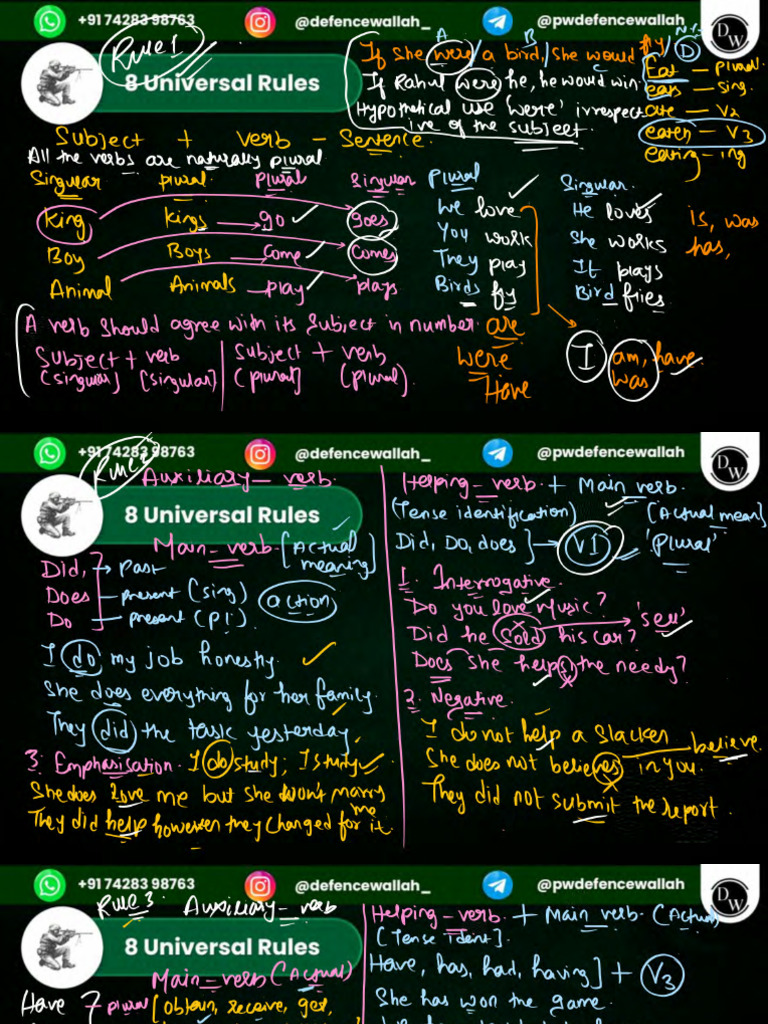 +91 74283 98763 @defencewallah_ @pwdefencewallah
DW
Rule 1
8 Universal Rules
A B
If she were a bird, she would fly
If Rahul were he, he would win
Hypothetical use 'were' irrespect
ive of the subject.
Eat — plural
eats — sing.
ate — V2
eaten — V3
eating - ing
Subject + verb - Sentence.
All the verbs are naturally plural
Singular plural plural Singular
King Kings go goes
Boy Boys come comes
Animal Animals play plays
Plural
We love
You work
They play
Birds fly
Singular.
He loves
She works
It plays
Bird flies
is, was
has,
A verb should agree with its Subject in number
Subject + verb
(singular) (singular)
Subject + verb
(plural) (plural)
are
were
Have
I am, have
was
+91 74283 98763 @defencewallah_ @pwdefencewallah
DW
Rule 2
8 Universal Rules
Auxiliary - verb.
Main - verb. [Actual
meaning]
Did, → Past
Does — present (sing)
Do — present (pl).
action
I do my job honestly.
She does everything for her family.
They did the task yesterday
3. Emphasisation. I do study; I study
She does love me but she won't marry
me
They did help however they changed for it.
Helping - verb + Main verb.
(Tense identification) [Actual mean]
Did, Do, does] → V1 'Plural'
1. Interrogative.
Do you love Music?
Did he sold his car? 'sell'
Does she helps the needy?
2. Negative.
I do not help a Slacker
She does not believes in you. believe
They did not submit the report.
+91 74283 98763 @defencewallah_ @pwdefencewallah
DW
Rule 3
8 Universal Rules
Auxiliary - verb
Main - verb (Actual)
Have plural [obtain, receive, get,
Helping - verb + Main verb. (Actual
[Tense Ident].
Have, has, had, having] + V3
She has won the game.